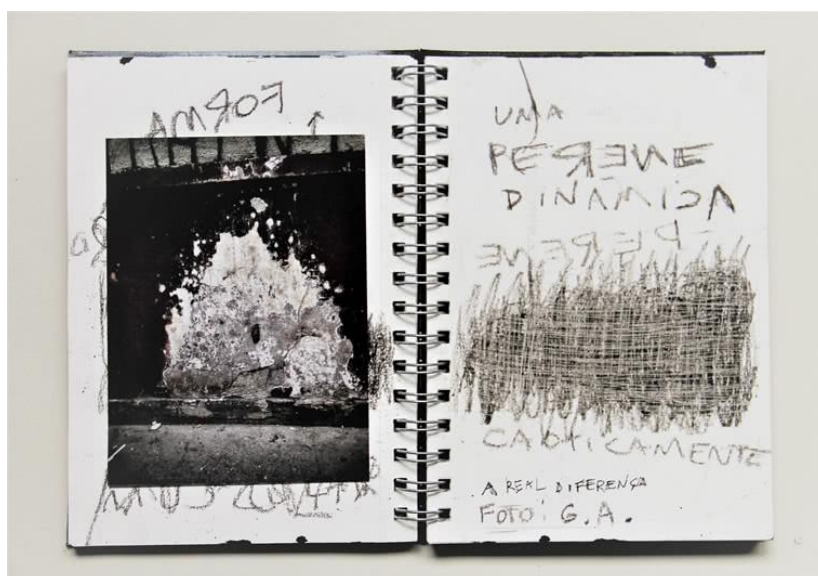 FORMA
UMA
PERENE
DINAMICA
PERENE
CAOTICAMENTE
A REAL DIFERENÇA
FOTO: G.A.